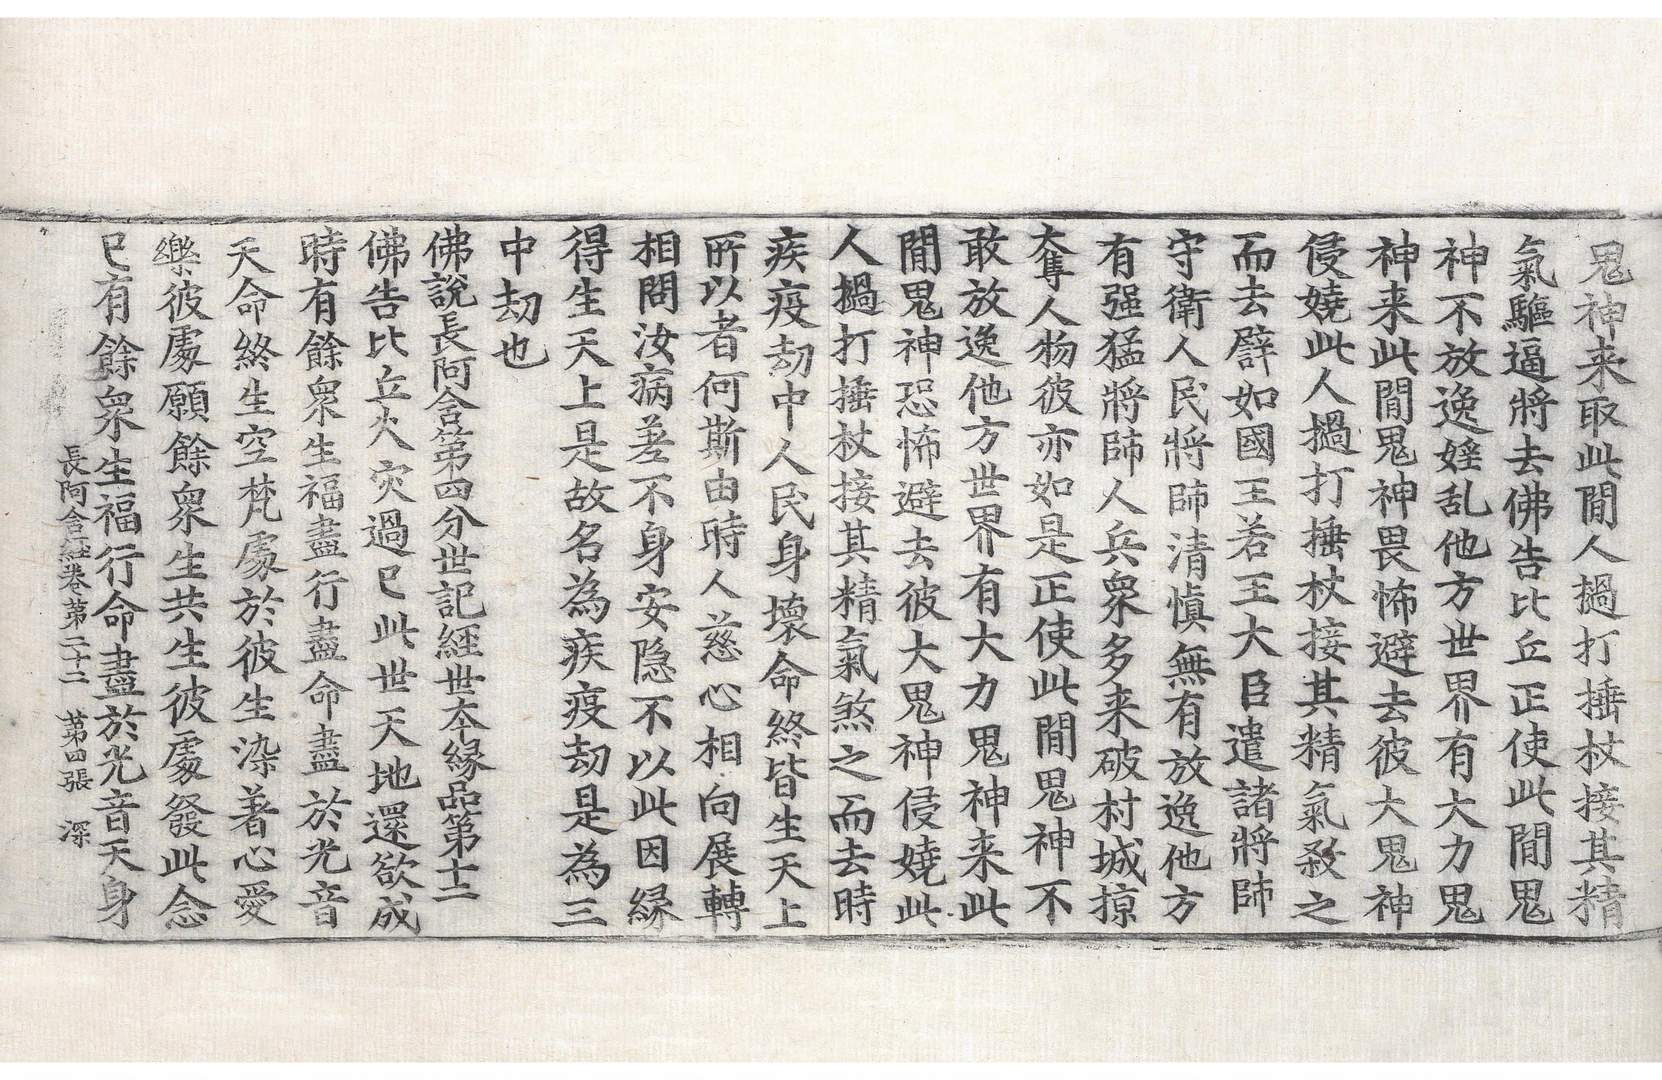 鬼神来取此間人撾打捶杖接其精
氣驅逼將去佛告比丘正使此間鬼
神不放逸婬乱他方世界有大力鬼
神来此間鬼神畏怖避去彼大鬼神
侵嬈此人撾打捶杖接其精氣殺之
而去譬如國王若王大臣遣諸將師
守衛人民將師清慎無有放逸他方
有强猛將師人兵衆多来破村城掠
奪人物彼亦如是正使此間鬼神不
敢放逸他方世界有大力鬼神来此
間鬼神恐怖避去彼大鬼神侵嬈此
人撾打捶杖接其精氣煞之而去時
疾疫劫中人民身壞命終皆生天上
所以者何斯由時人慈心相向展轉
相問汝病差不身安隐不以此因緣
得生天上是故名為疾疫劫是為三
中劫也
佛說長阿含第四分世記經世夲緣品第十二
佛告比丘火灾過已此世天地還欲成
時有餘衆生福盡行盡命盡於光音
天命終生空梵處於彼生染著心愛
樂彼處願餘衆生共生彼處發此念
已有餘衆生福行命盡於光音天身
長阿含經卷第二十二　第四張　深